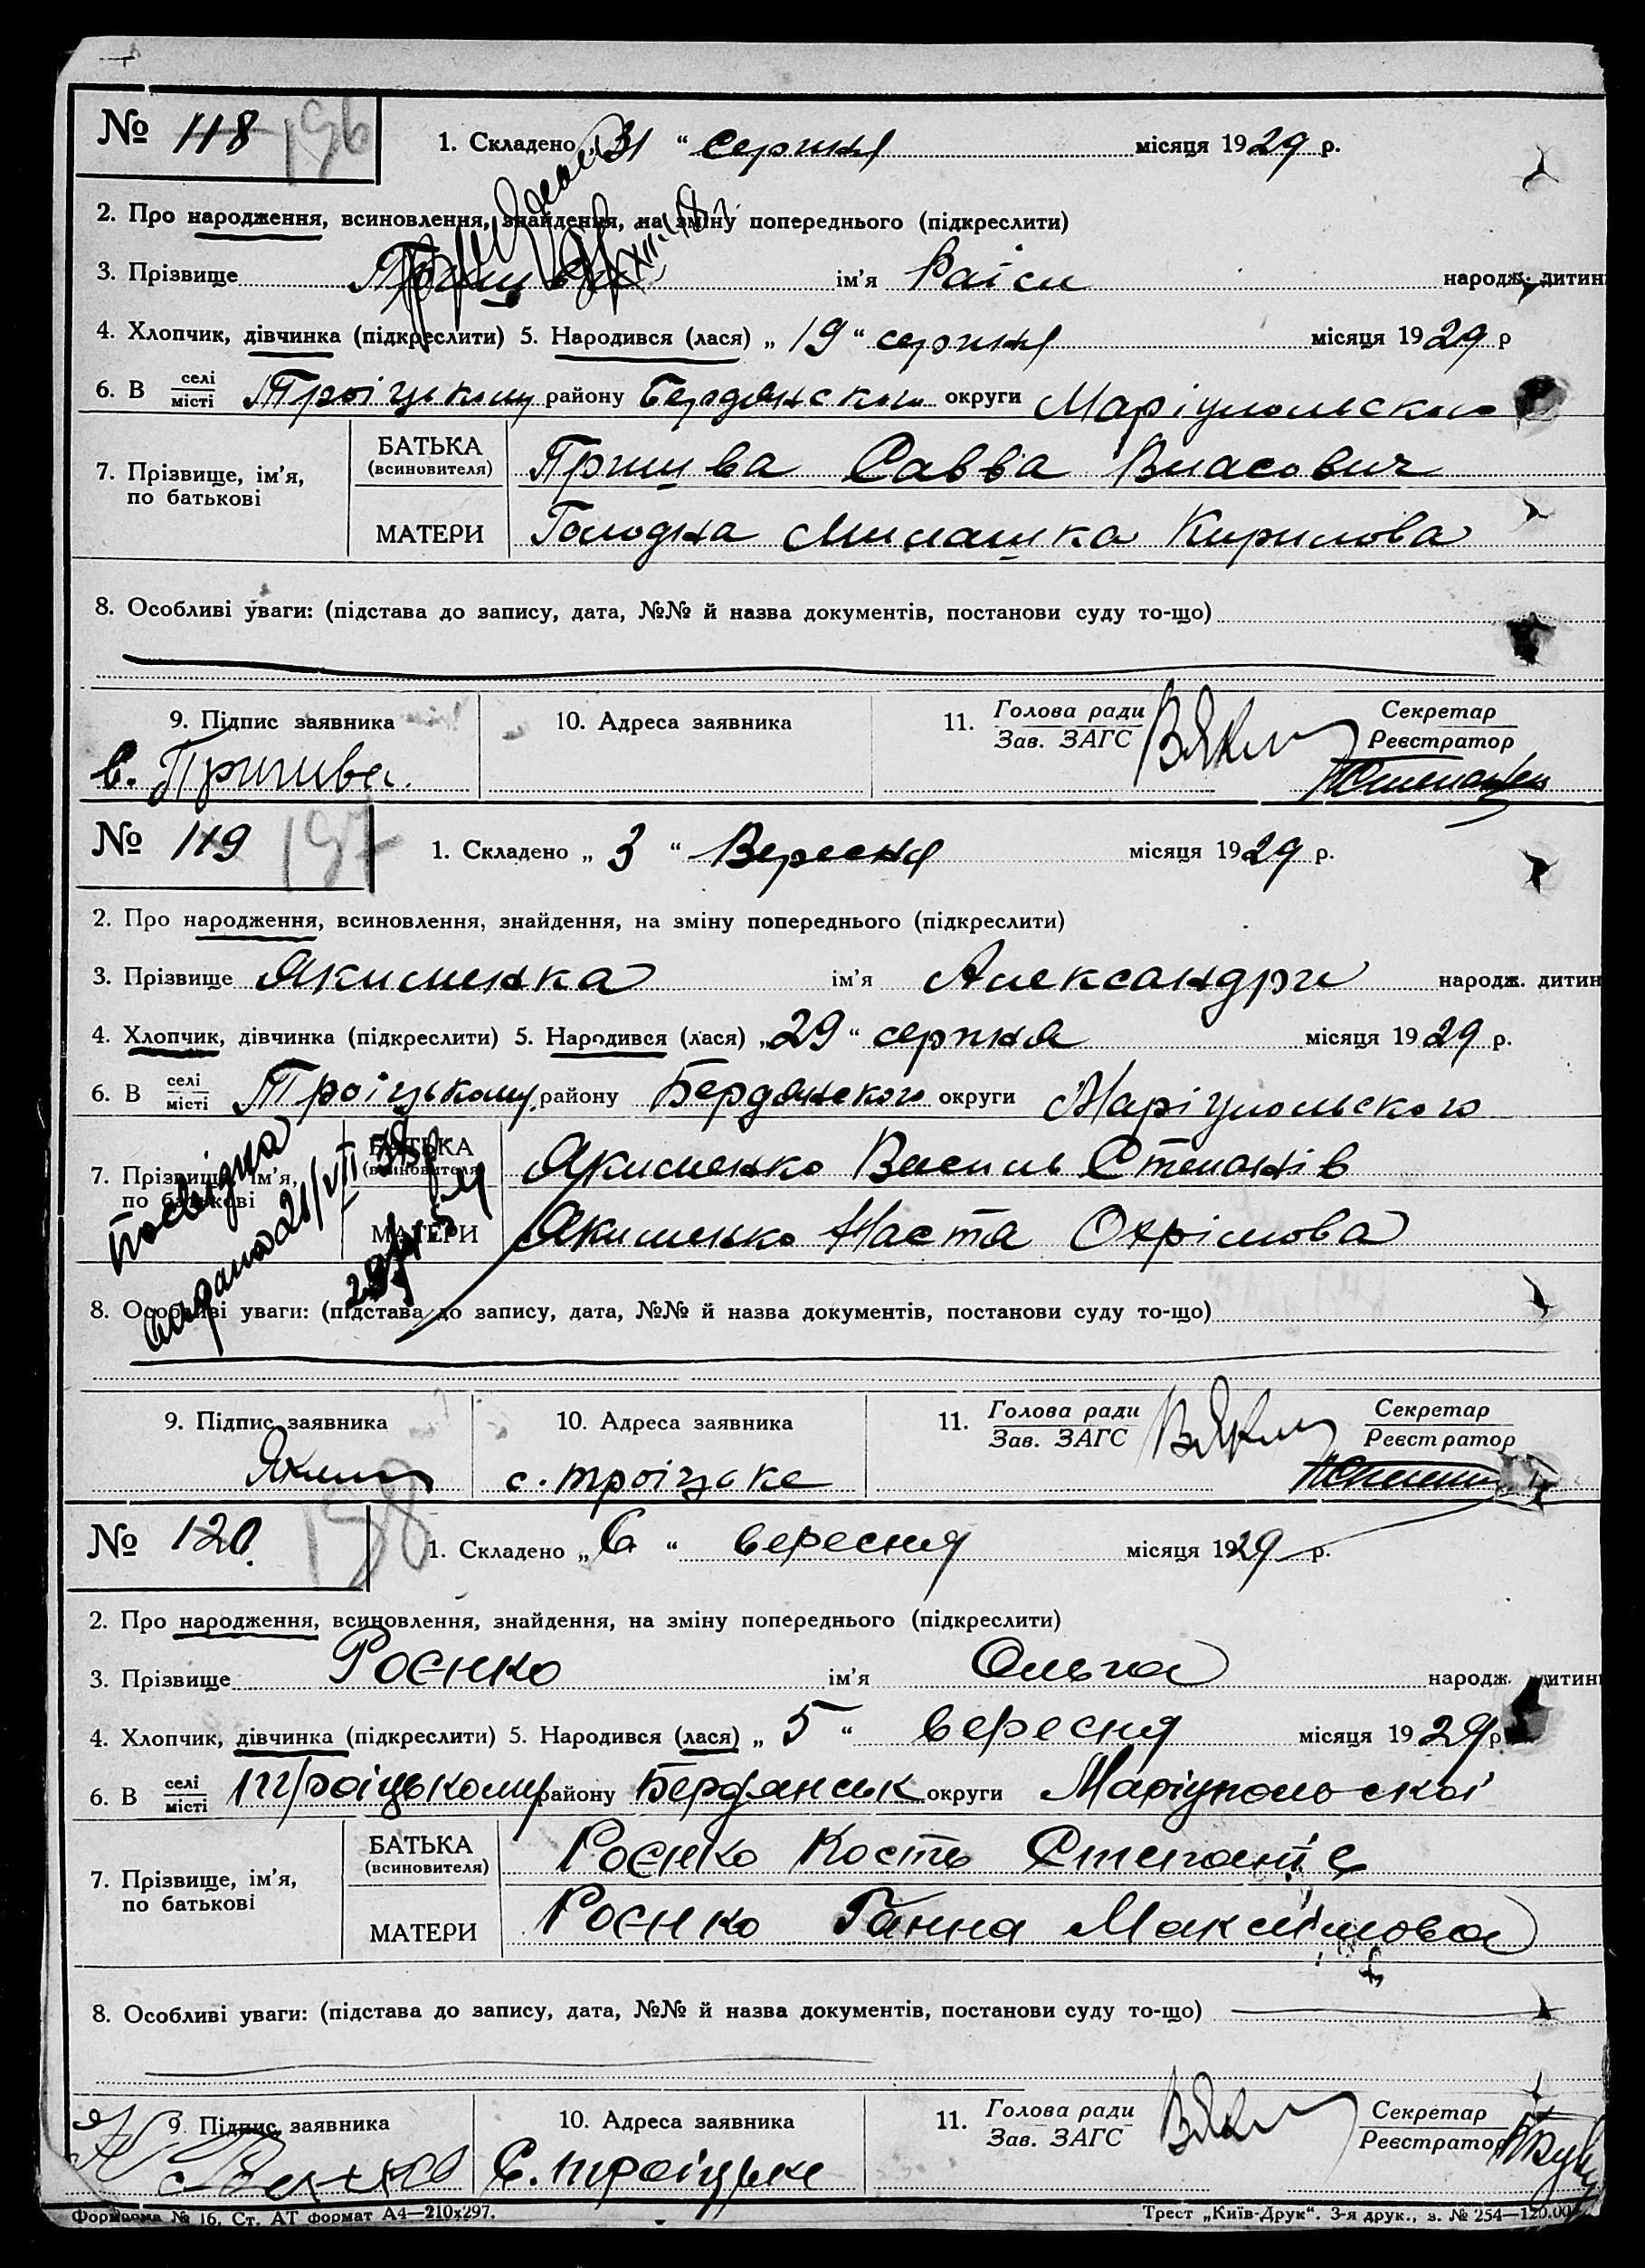 № 118 196
1. Складено „31“ серпня місяця 1929 р.
2. Про народження, всиновлення, знайдення, на зміну попереднього (підкреслити)
3. Прізвище ім’я Раіси народж. дитин
4. Хлопчик, дівчинка (підкреслити) 5. Народився (лася) „19“ серпня місяця 1929 р
6. В селі місті Троіцькому району Бердянського округи Маріупольского
7. Прізвище, ім’я, по батькові
БАТЬКА (всиновителя) Пришва Савва Власович
МАТЕРИ Голодна Милашка Кирилова
8. Особливі уваги: (підстава до запису, дата, №№ й назва документів, постанови суду то-що)
9. Підпис заявника 10. Адреса заявника 11. Голова ради Зав. ЗАГС Секретар Реєстратор
в. Пришва.
№ 119 197
1. Складено „3“ Вересня місяця 1929 р.
2. Про народження, всиновлення, знайдення, на зміну попереднього (підкреслити)
3. Прізвище Якименка ім’я Александри народж. дитин
4. Хлопчик, дівчинка (підкреслити) 5. Народився (лася) „29“ серпня місяця 1929 р.
6. В селі місті Троіцькому району Бердянского округи Маріупольского
7. Прізвище, ім’я, по батькові
БАТЬКА (всиновителя) Якименко Василь Степанів
МАТЕРИ Якименко Наста Охрімова
8. Особливі уваги: (підстава до запису, дата, №№ й назва документів, постанови суду то-що)
9. Підпис заявника 10. Адреса заявника 11. Голова ради Зав. ЗАГС Секретар Реєстратор
с. троізьке
№ 120. 198
1. Складено „6“ вересня місяця 1929 р.
2. Про народження, всиновлення, знайдення, на зміну попереднього (підкреслити)
3. Прізвище Роєнко ім’я Ольга народж. дитин
4. Хлопчик, дівчинка (підкреслити) 5. Народився (лася) „5“ вересня місяця 1929 р
6. В селі місті Троіцькому району Бердянськ округи Маріупольскоі
7. Прізвище, ім’я, по батькові
БАТЬКА (всиновителя) Роєнко Кость Степанів
МАТЕРИ Роєнко Ганна Максімова
8. Особливі уваги: (підстава до запису, дата, №№ й назва документів, постанови суду то-що)
9. Підпис заявника 10. Адреса заявника 11. Голова ради Зав. ЗАГС Секретар Реєстратор
С. троіцьке
№ 16. Ст. АТ формат А4—210х297. Трест „Київ-Друк“. 3-я друк., з. № 254—120.00